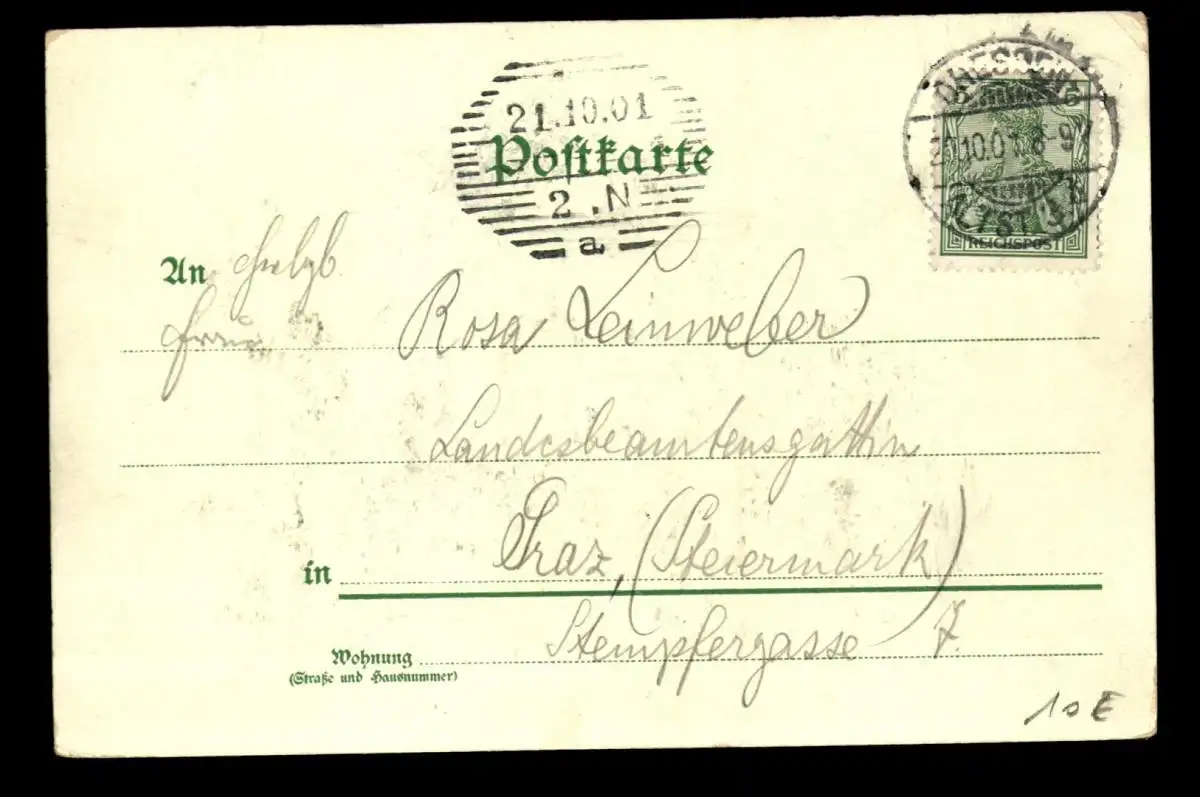 DRESDEN
20.10.01. 8-9
5 5
REICHSPOST
21.10.01
Postkarte
2.N
a
An
Frau Rosa Leinweber
Landesbeamtensgattin
in Graz, (Steiermark)
Wohnung Stempfergasse 7.
(Straße und Hausnummer)
10 €